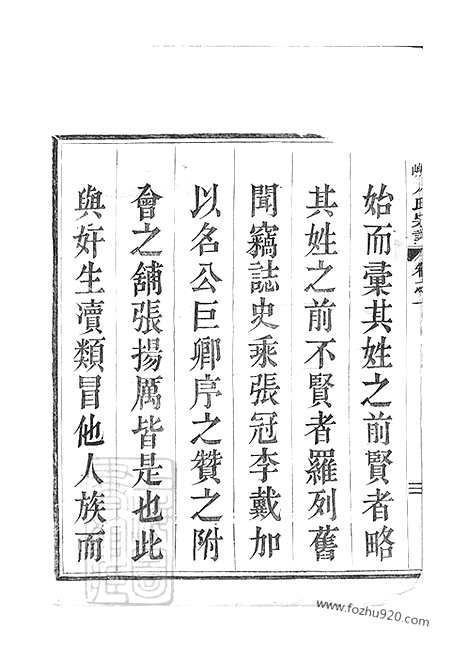 氏宗譜
卷之一
三
始而彙其姓之前賢者略
其姓之前不賢者羅列舊
聞竊誌史乘張冠李戴加
以名公巨卿序之贊之附
會之舖張揚厲皆是也此
與奸生瀆類冒他人族而
https://www.fozhu920.com